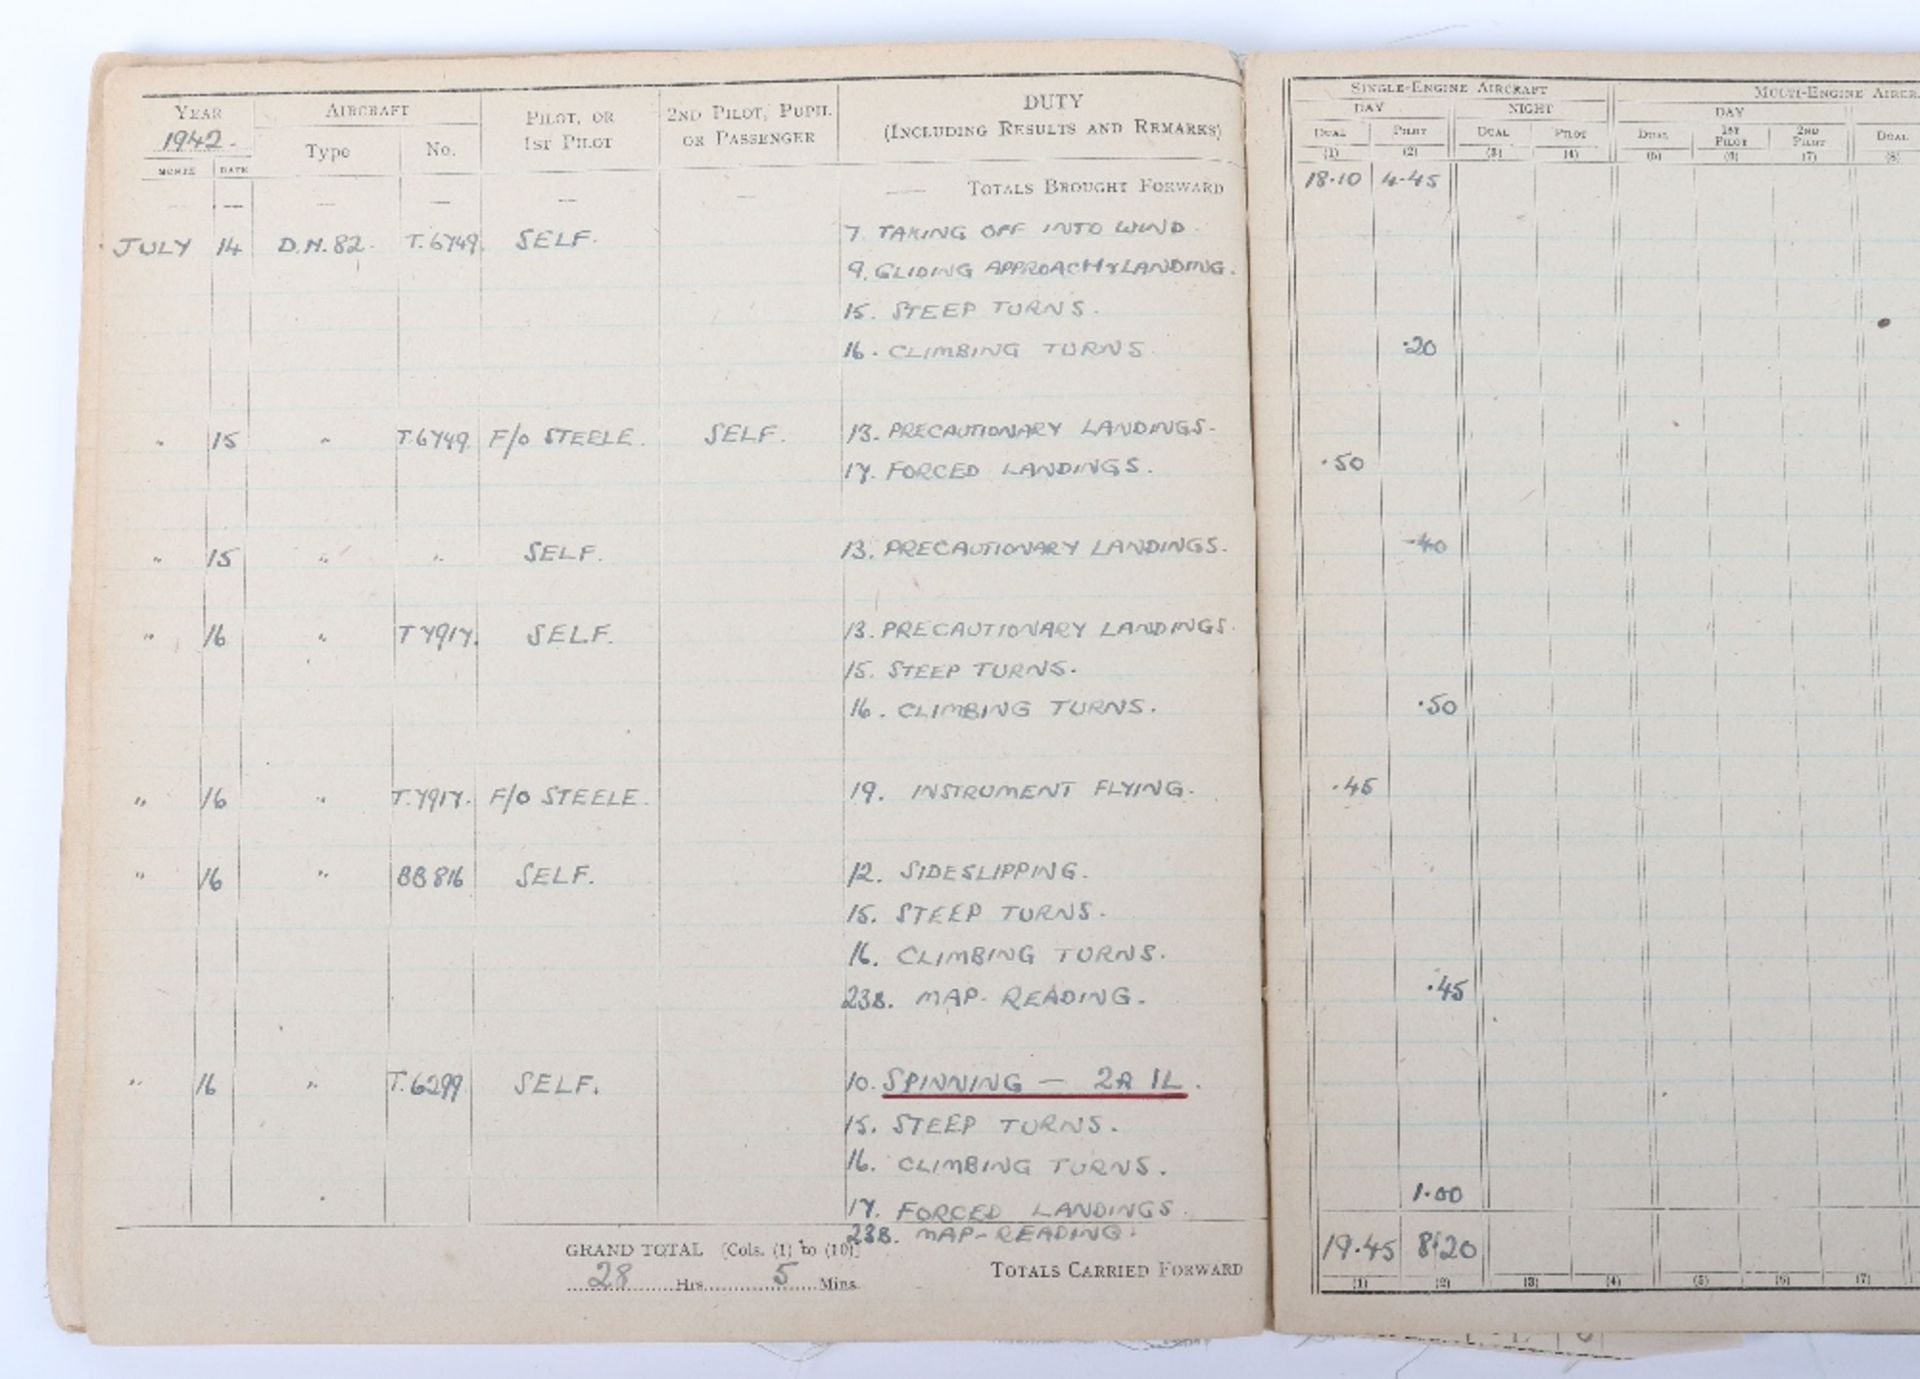 YEAR AIRCRAFT PILOT, OR 2ND PILOT, PUPIL DUTY SINGLE-ENGINE AIRCRAFT MULTI-ENGINE AIRCRA
1942. Type No. 1ST PILOT OR PASSENGER (INCLUDING RESULTS AND REMARKS) DAY NIGHT DAY
MONTH DATE DUAL PILOT DUAL PILOT DUAL 1ST PILOT 2ND PILOT DUAL
(1) (2) (3) (4) (5) (6) (7) (8)
— -- — — — — — TOTALS BROUGHT FORWARD 18.10 4.45
JULY 14 D.H.82. T.6749. SELF. 7. TAKING OFF INTO WIND.
9. GLIDING APPROACH & LANDING.
15. STEEP TURNS.
16. CLIMBING TURNS .20
" 15 " T.6749. F/O STEELE. SELF. 13. PRECAUTIONARY LANDINGS.
17. FORCED LANDINGS. .50
" 15 " " SELF. 13. PRECAUTIONARY LANDINGS. .40
" 16 " T7917. SELF. 13. PRECAUTIONARY LANDINGS.
15. STEEP TURNS.
16. CLIMBING TURNS. .50
" 16 " T.7917. F/O STEELE. 19. INSTRUMENT FLYING. .45
" 16 " BB816 SELF. 12. SIDESLIPPING.
15. STEEP TURNS.
16. CLIMBING TURNS.
23B. MAP-READING. .45
" 16 " T.6299. SELF. 10. SPINNING — 2R 1L.
15. STEEP TURNS.
16. CLIMBING TURNS.
17. FORCED LANDINGS. 1.00
23B. MAP-READING.
GRAND TOTAL [Cols. (1) to (10)] 19.45 8.20
28 Hrs. 5 Mins. TOTALS CARRIED FORWARD
(1) (2) (3) (4) (5) (6) (7)